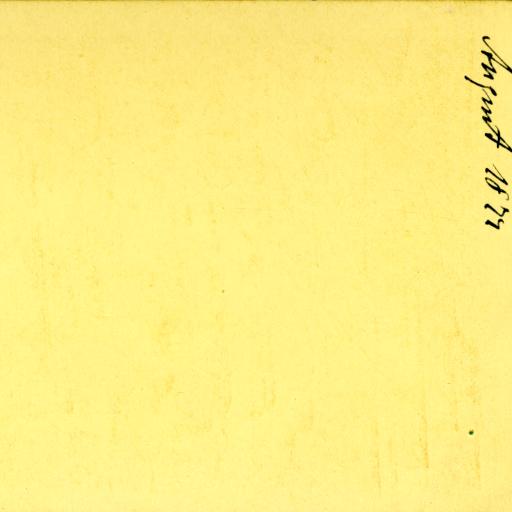 August 1877